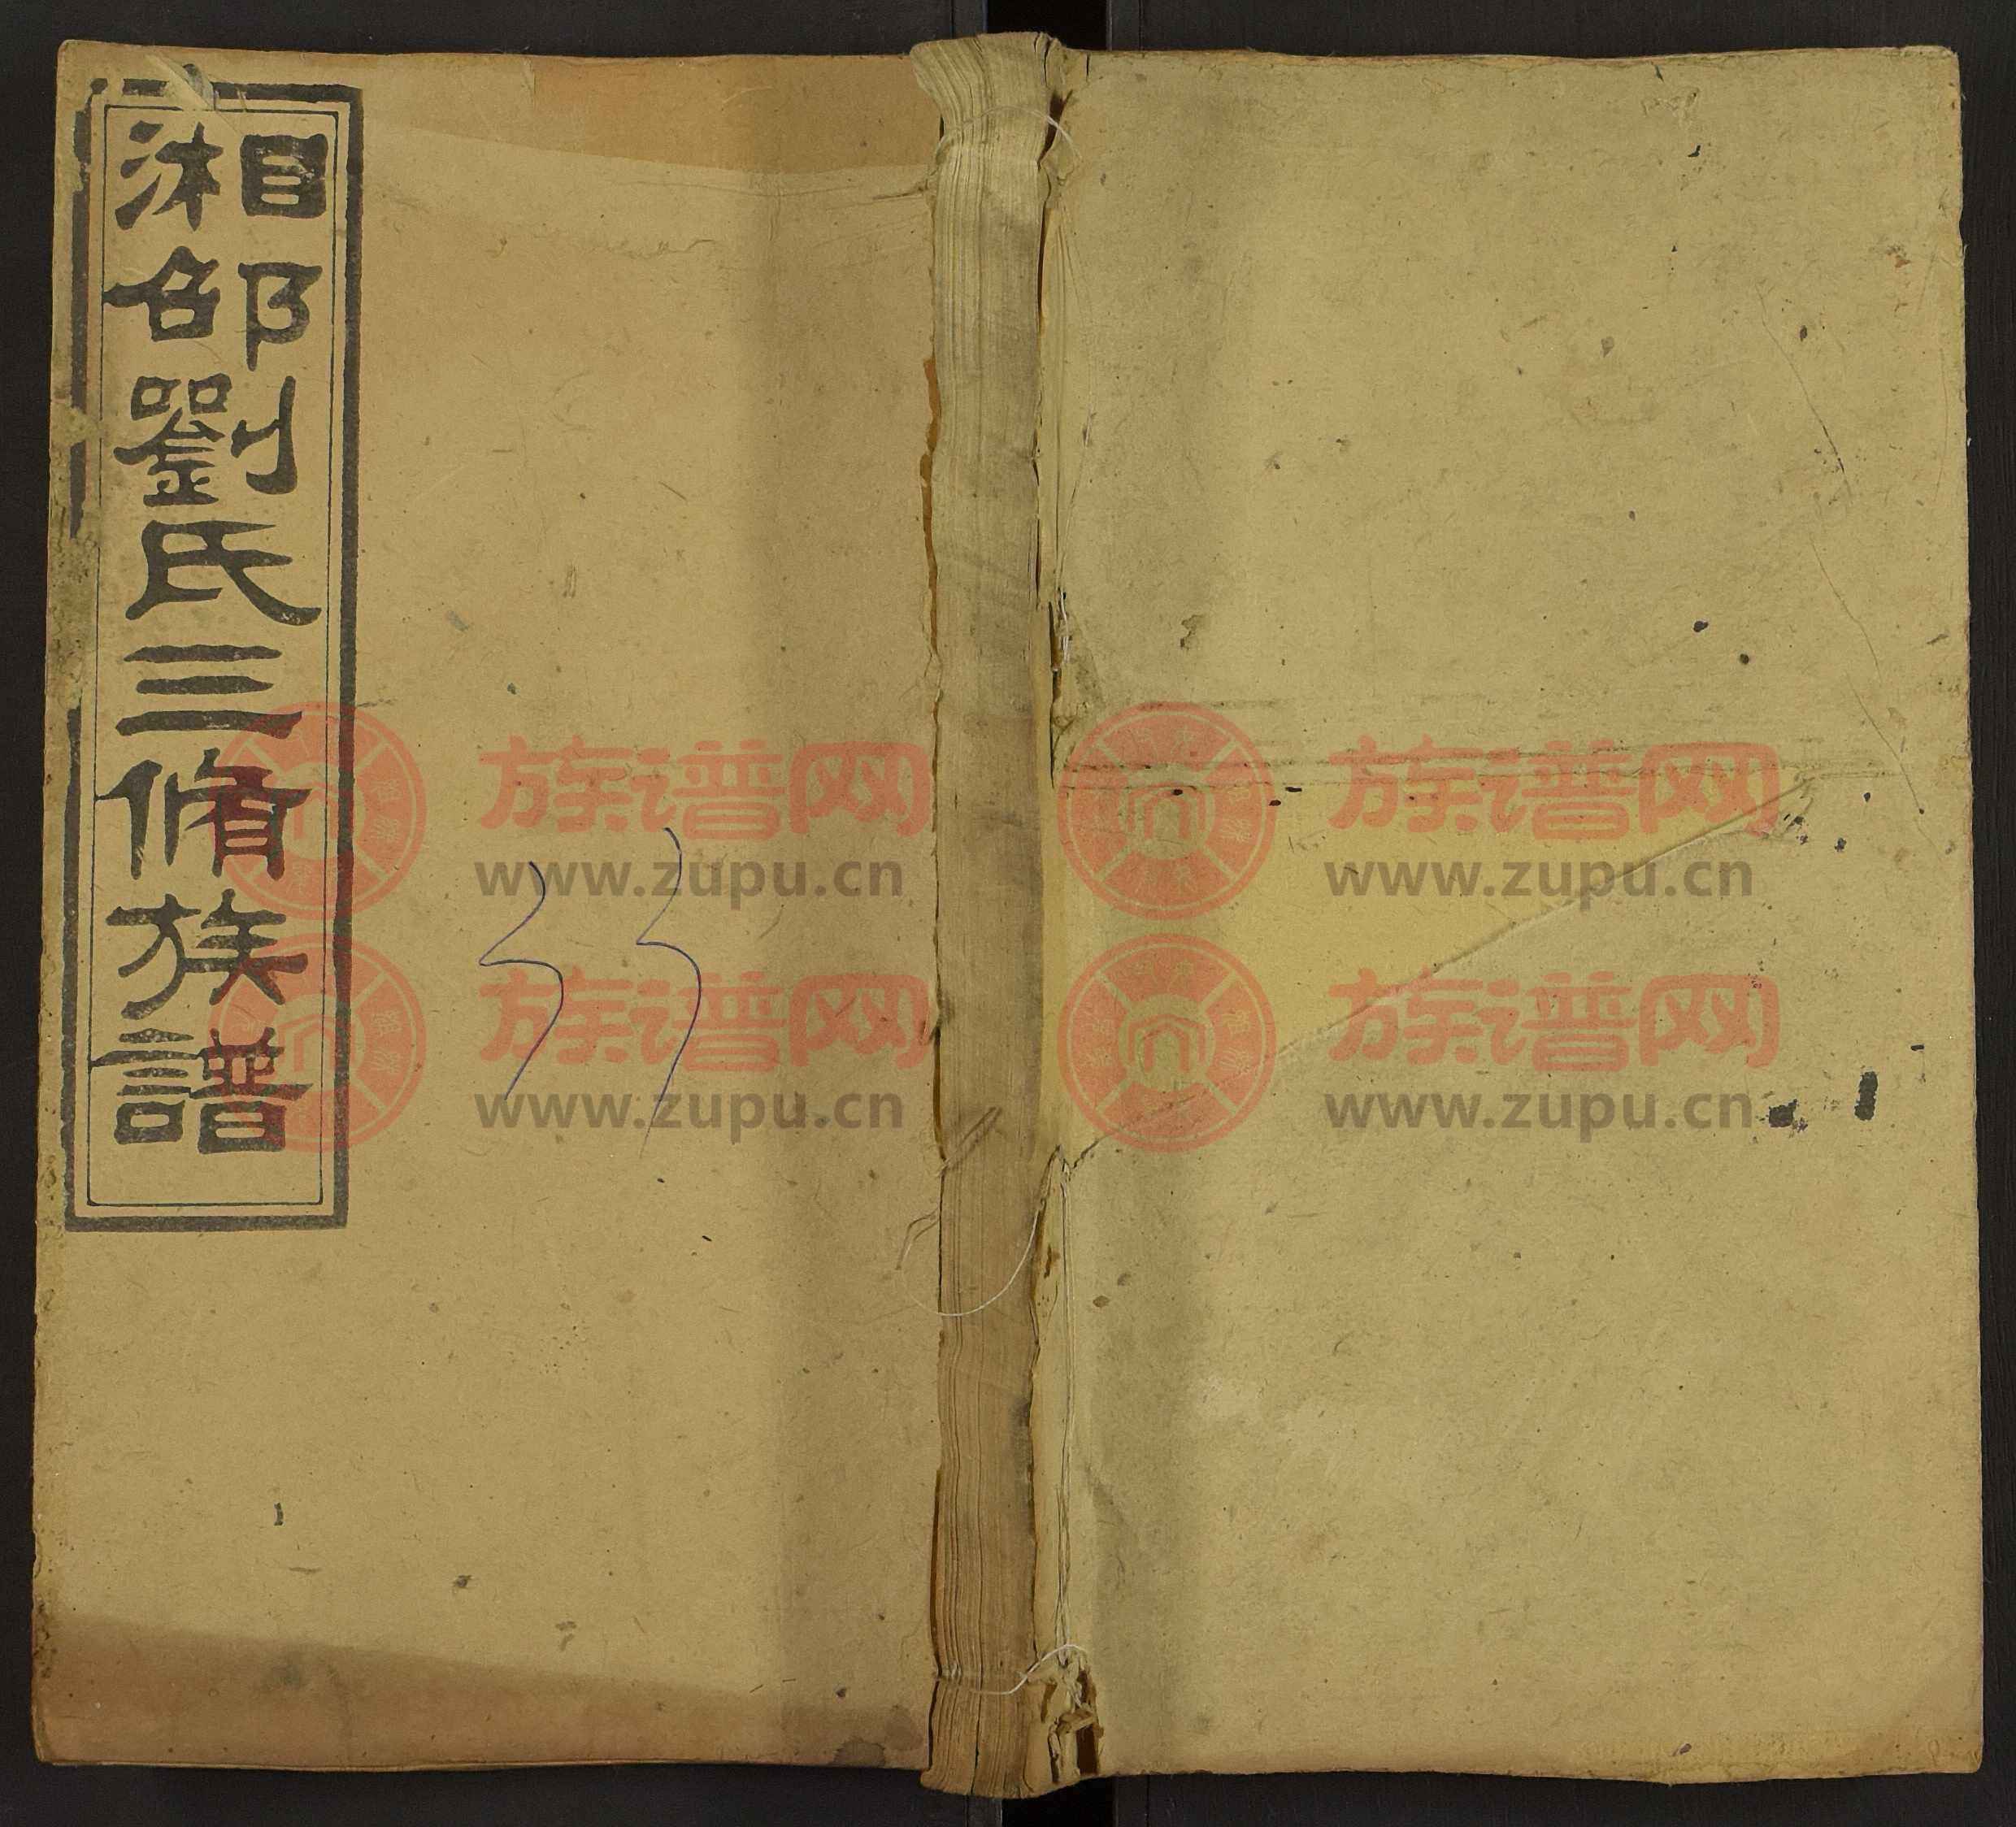 湘邵劉氏三脩族譜
33
族谱网
www.zupu.cn
族谱网
www.zupu.cn
族谱网
www.zupu.cn
族谱网
www.zupu.cn